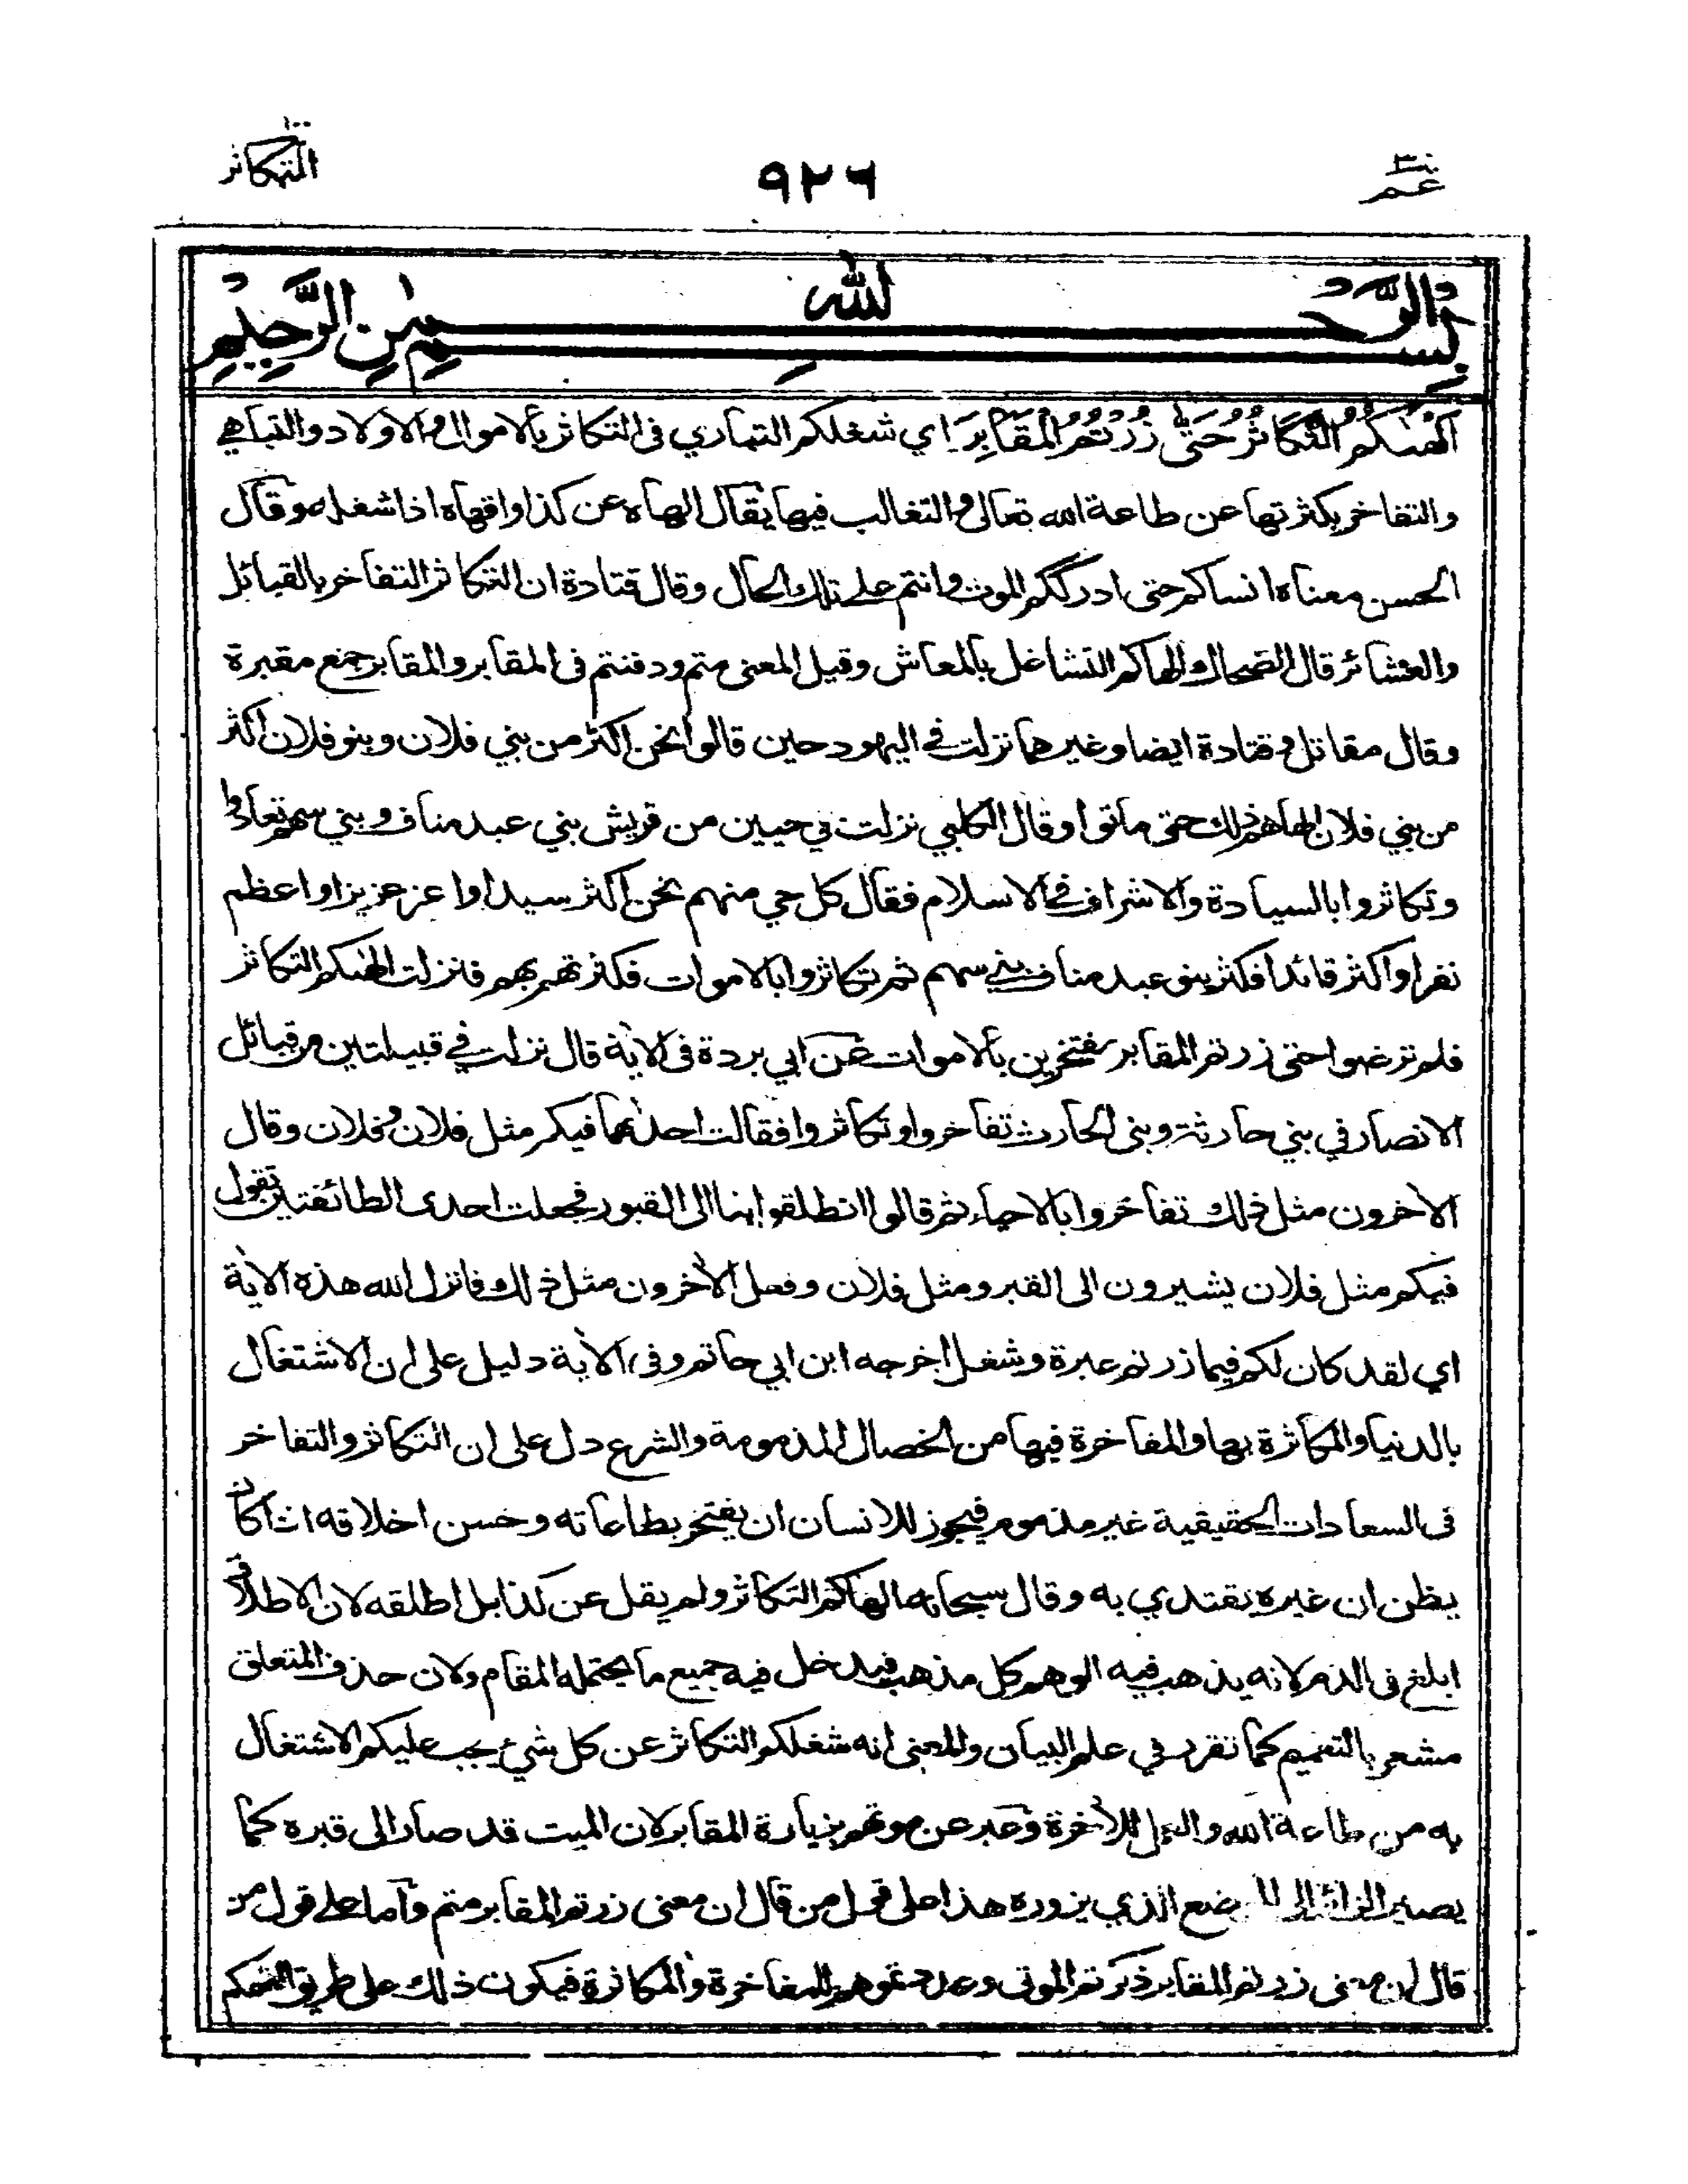 عم ٣٠
٩٢٦
التكاثر ١٠٠
بسم الله الرحمن الرحيم
اَلْهٰىكُمُ التَّكَاثُرُ حَتّٰى زُرْتُمُ الْمَقَابِرَ اي شغلكم التباري فى التكاثر بالاموال والاولاد والتباهي
والتفاخر بكثرتها عن طاعة الله تعالى والتغالب فيها يقال الهاه عن كذا واقهاه اذا شغله وقال
الحسن معناه انساكم حتى ادرككم الموت وانتم على تلك الحال وقال قتادة ان التكاثر التفاخر بالقبائل
والعشائر قال الضحاك والهاكم التشاغل بالمعاش وقيل المعنى متم ودفنتم فى المقابر والمقابر جمع مقبرة
وقال مقاتل وقتادة ايضا وغيرهما نزلت في اليهود حين قالوا نحن اكثر من بني فلان وبنو فلان اكثر
من بني فلان الهاهم ذلك حتى ماتوا وقال الكلبي نزلت في حيين من قريش بني عبد مناف وبني سهم تعادوا
وتكاثروا بالسيادة والاشراف في الاسلام فقال كل حي منهم نحن اكثر سيدا واعز عزيزا واعظم
نفرا واكثر قائدا فكثر بنو عبد مناف بني سهم ثم تكاثروا بالاموات فكثرتهم بهم فنزلت الهٰىكم التكاثر
فلم ترضوا حتى زرتم المقابر مفتخرين بالاموات عن ابي بردة فى الاٰية قال نزلت في قبيلتين من قبائل
الانصار في بني حارثة وبنى الحارث تفاخروا وتكاثروا فقالت احداهما فيكم مثل فلان وفلان وقال
الاٰخرون مثل ذلك تفاخروا بالاحياء ثم قالوا انطلقوا بنا الى القبور فجعلت احدى الطائفتين تقول
فيكم مثل فلان يشيرون الى القبر ومثل فلان وفعل الاٰخرون مثل ذلك فانزل الله هذه الاٰية
اي لقد كان لكم فيما زرتم عبرة وشغل اخرجه ابن ابي حاتم وفى الاٰية دليل على ان الاشتغال
بالدنيا والمكاثرة بها والمفاخرة فيها من الخصال المذمومة والشرع دل على ان التكاثر والتفاخر
فى السعادات الحقيقية غير مذموم فيجوز للانسان ان يفتخر بطاعاته وحسن اخلاقه اذا كان
يظن ان غيره يقتدي به وقال سبحانه الهاكم التكاثر ولم يقل عن كذا بل اطلقه لان الاطلاق
ابلغ فى الذم لانه يذهب فيه الوهم كل مذهب فيدخل فيه جميع ما يحتمله المقام ولان حذف المتعلق
مشعر بالتعميم كما تقرر في علم البيان والمعنى انه شغلكم التكاثر عن كل شيء يجب عليكم الاشتغال
به من طاعة الله والعمل للاٰخرة وعبر عن موتهم بزيارة المقابر لان الميت قد صار الى قبره كما
يصير الزائر الى الموضع الذي يزوره هذا على قول من قال ان معنى زرتم المقابر متم وأما على قول من
قال ان معنى زرتم المقابر ذكرتم الموتى وعددتموهم للمفاخرة والمكاثرة فيكون ذلك على طريق التهكم